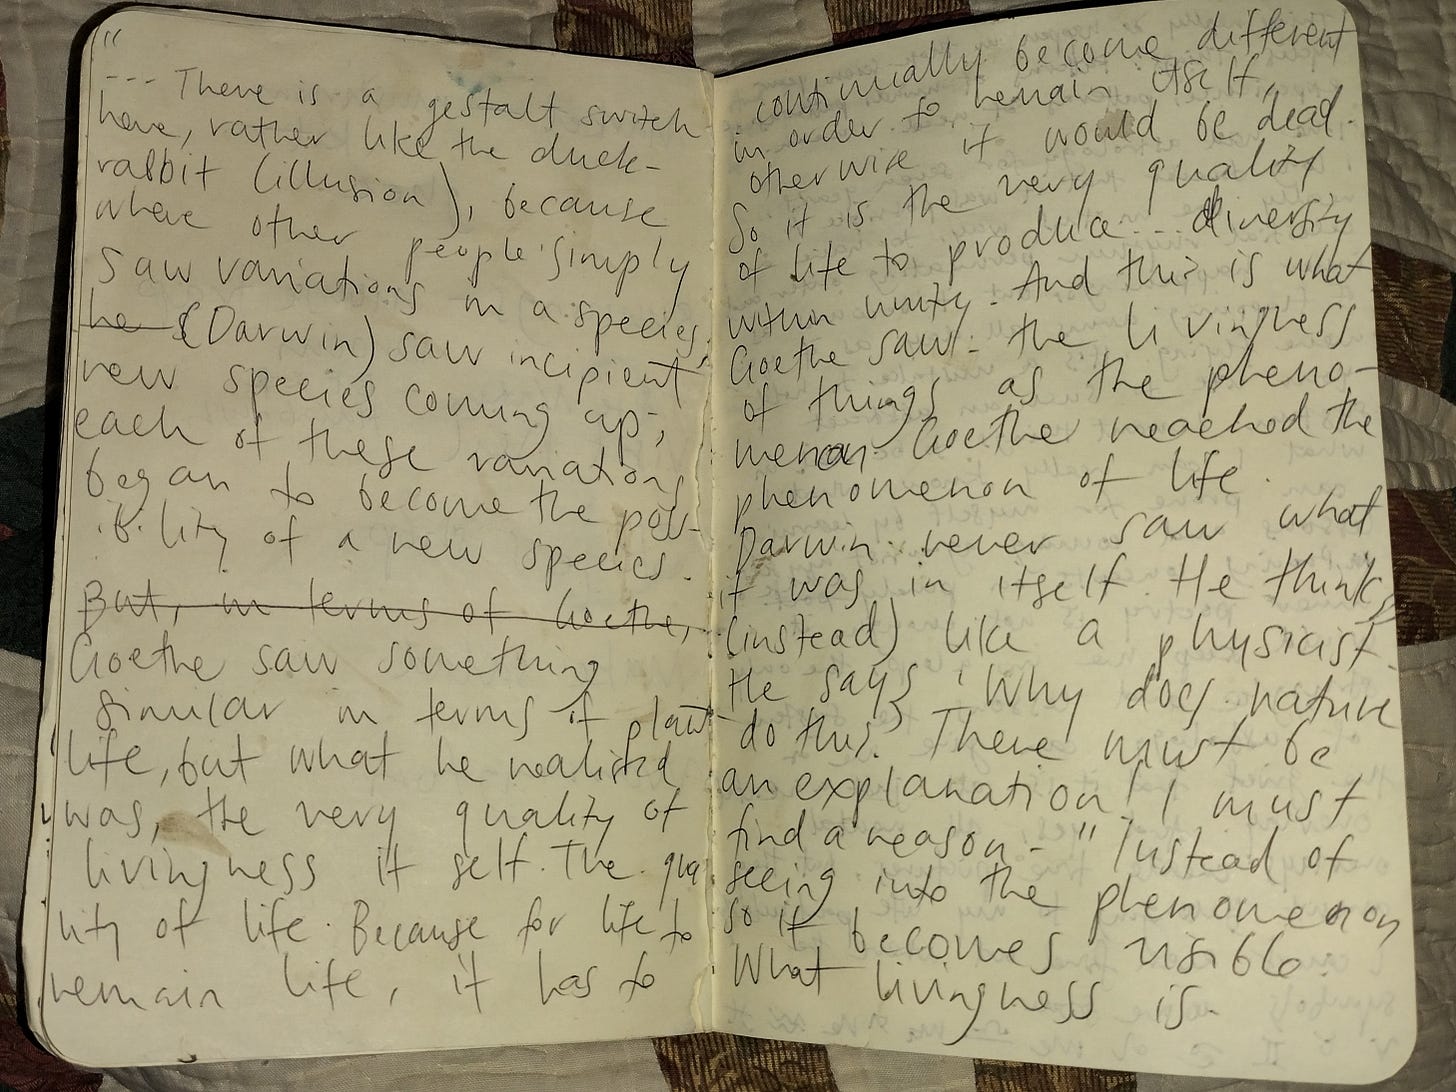 "
--- There is a gestalt switch
here, rather like the duck-
rabbit (illusion), because
where other people simply
saw variations in a species,
he (Darwin) saw incipient
new species coming up;
each of these variations
began to become the poss-
ibility of a new species.
But, in terms of Goethe,
Goethe saw something
similar in terms of plant
life, but what he realised
was, the very quality of
livingness itself. The qua
lity of life. Because for life to
remain life, it has to
continually become different
in order to remain itself,
otherwise it would be dead.
So it is the very quality
of life to produce... diversity
within unity. And this is what
Goethe saw - the livingness
of things as the pheno-
menon. Goethe reached the
phenomenon of life.
Darwin never saw what
it was in itself. He thinks
(instead) like a physicist.
He says 'Why does nature
do this? There must be
an explanation! I must
find a reason -" Instead of
seeing into the phenomenon
so it becomes visible.
What livingness is.